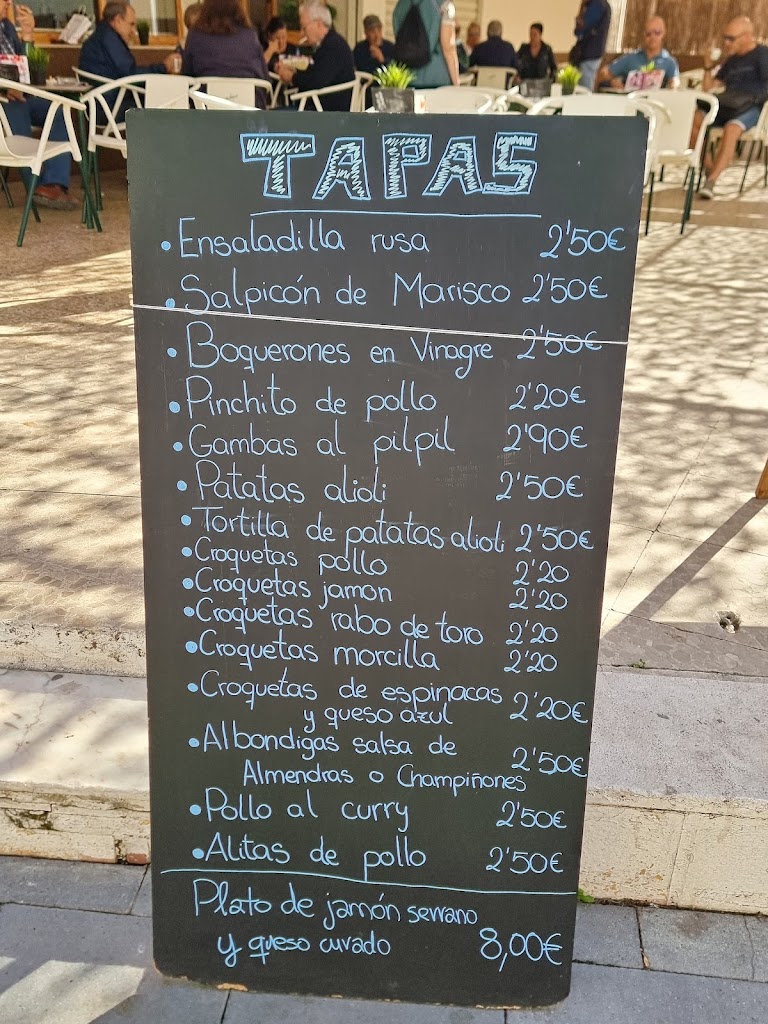 TAPAS
• Ensaladilla rusa 2'50€
• Salpicón de Marisco 2'50€
• Boquerones en Vinagre 2'50€
• Pinchito de pollo 2'20€
• Gambas al pilpil 2'90€
• Patatas alioli 2'50€
• Tortilla de patatas alioli 2'50€
• Croquetas pollo 2'20
• Croquetas jamon 2'20
• Croquetas rabo de toro 2'20
• Croquetas morcilla 2'20
• Croquetas de espinacas
y queso azul 2'20€
• Albondigas salsa de
Almendras o Champiñones 2'50€
• Pollo al curry 2'50€
• Alitas de pollo 2'50€
Plato de jamón serrano
y queso curado 8,00€